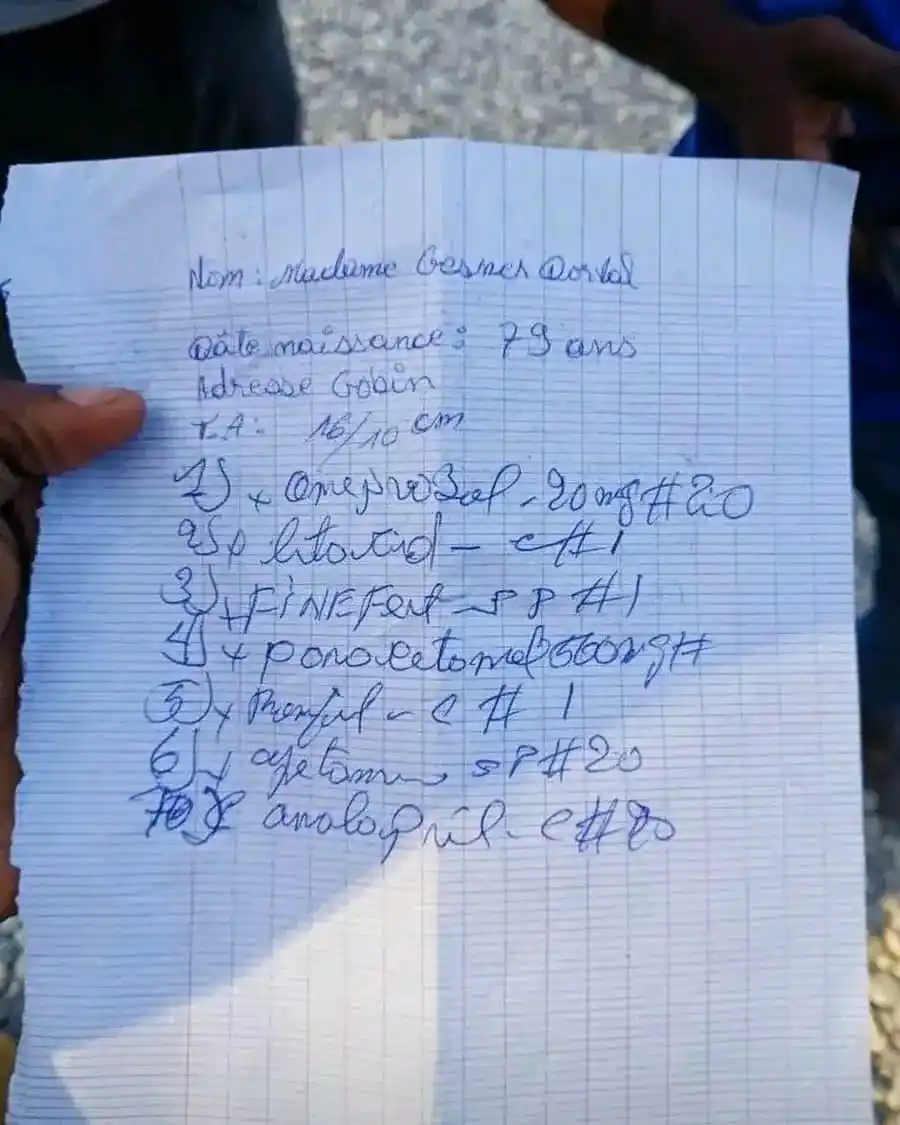 Nom : Madame Gesner Dorval
Date naissance : 79 ans
Adresse Gobin
T.A: 16/10 cm
1) x Omeprozal - 20mg # 20
2) x - c # 1
3) x FiNEFert - SP # 1
4) x paracetamol 500mg #
5) x - c # 1
6) x - SP # 20
7) x - c # 20